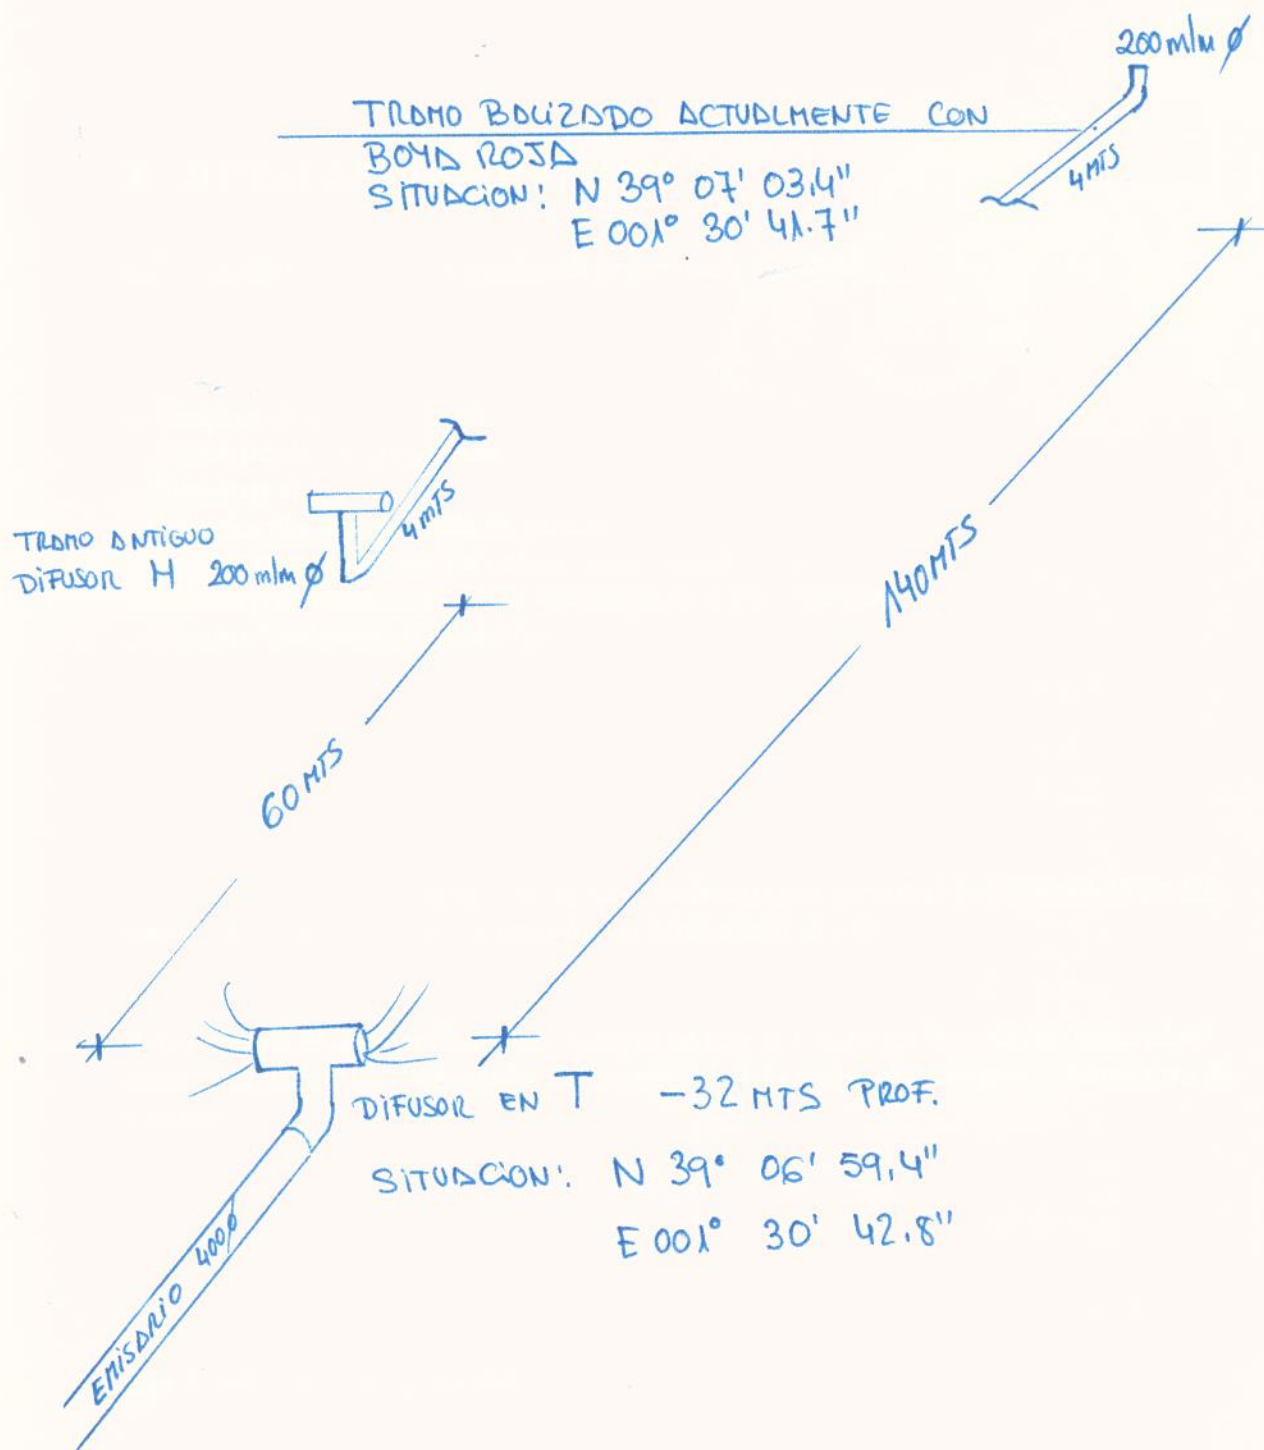 200 m/m ø
TRAMO BALIZADO ACTUALMENTE CON
BOYA ROJA
SITUACION: N 39° 07' 03,4"
E 001° 30' 41.7"
4 MTS
4 MTS
TRAMO ANTIGUO
DIFUSOR H 200 m/m ø
140 MTS
60 MTS
DIFUSOR EN T -32 MTS PROF.
SITUACION: N 39° 06' 59,4"
E 001° 30' 42.8"
EMISARIO 400ø